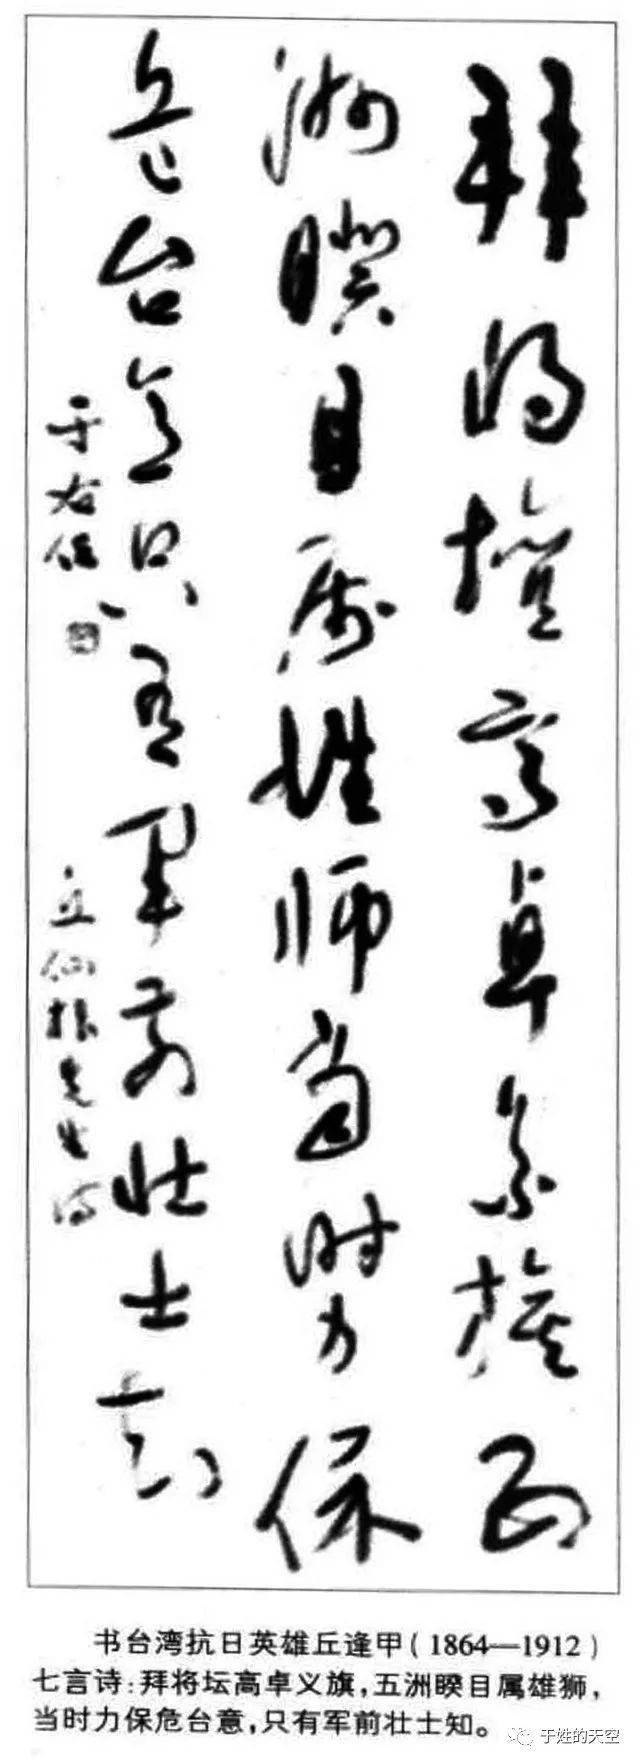 拜將壇高卓義旗五
洲睽目屬雄師當時力保
危台意只有軍前壯士知
丘仙根先生詩
于右任
书台湾抗日英雄丘逢甲(1864—1912)
七言诗:拜将坛高卓义旗,五洲睽目属雄狮,
当时力保危台意,只有军前壮士知。
于姓的天空